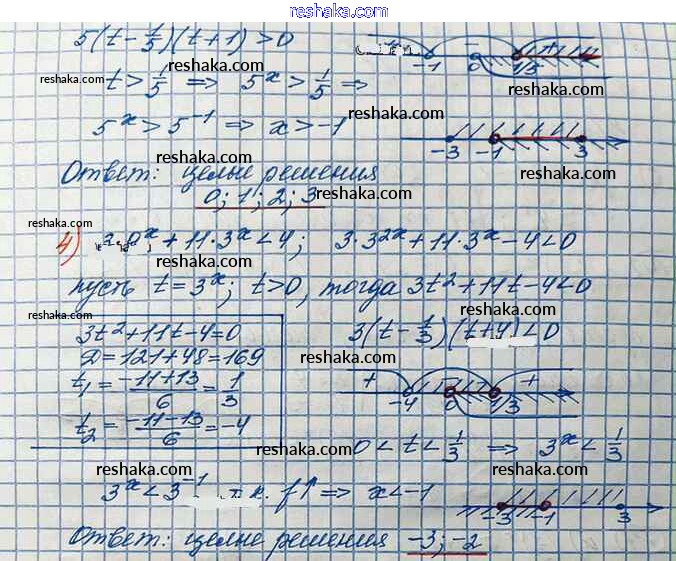 reshaka.com
5(t-1/5)(t+1)>0
+ - + -1 0 1/5
reshaka.com
t>1/5 => 5^x>1/5 =>
reshaka.com
reshaka.com
reshaka.com
5^x>5^-1 => x>-1
reshaka.com
-3 -1 3
reshaka.com
Ответ: целые решения
reshaka.com
0; 1; 2; 3
reshaka.com
reshaka.com
4) 9^x+11·3^x<4; 3·3^2x+11·3^x-4<0
reshaka.com
reshaka.com
пусть t=3^x; t>0, тогда 3t²+11t-4<0
reshaka.com
reshaka.com
3t²+11t-4=0
3(t-1/3)(t+4)<0
D=121+48=169
reshaka.com
reshaka.com
t1=(-11+13)/6=1/3
+ - + -4 0 1/3
reshaka.com
reshaka.com
t2=(-11-13)/6=-4
reshaka.com
0<t<1/3 => 3^x<1/3
reshaka.com
reshaka.com
3^x<3^-1 т.к. f↑ => x<-1
reshaka.com
-3 -1 3
reshaka.com
Ответ: целые решения -3; -2
reshaka.com
reshaka.com